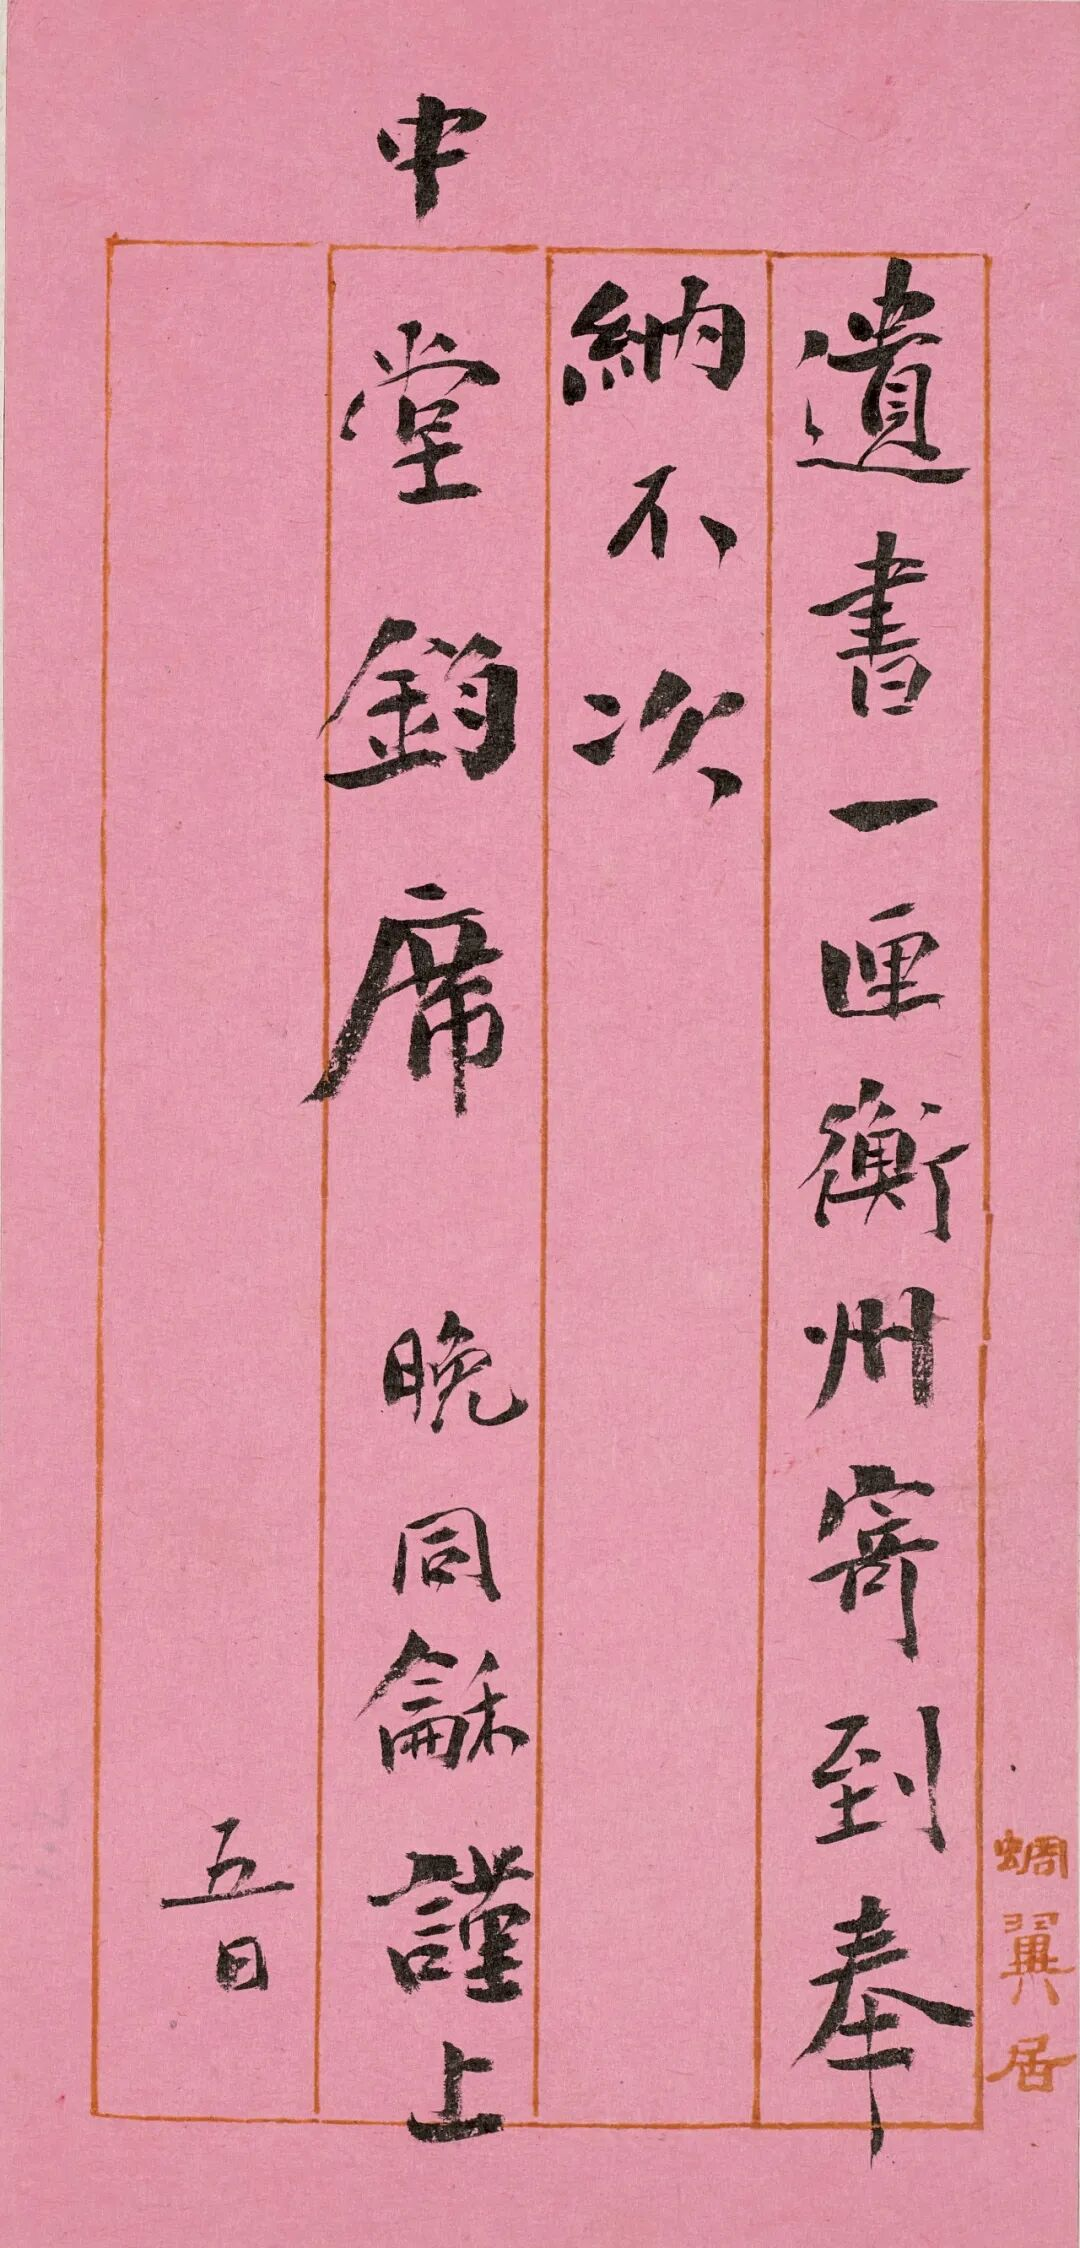 遺書一匣衡州寄到奉
納不次
中堂鈞席　晚同龢謹上
五日
蜩翼居